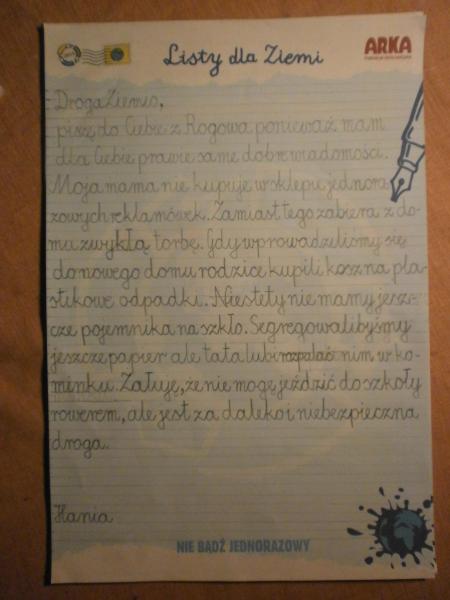 Listy dla Ziemi
ARKA
Droga Ziemio,
piszę do Ciebie z Rogowa ponieważ mam
dla Ciebie prawie same dobre wiadomości.
Moja mama nie kupuje w sklepie jednora-
zowych reklamówek. Zamiast tego zabiera z do-
mu zwykłą torbę. Gdy wprowadziliśmy się
do nowego domu rodzice kupili kosz na pla-
stikowe odpadki. Niestety nie mamy jesz-
cze pojemnika na szkło. Segregowalibyśmy
jeszcze papier ale tata lubi rozpalać nim w ko-
minku. Żałuję, że nie mogę jeździć do szkoły
rowerem, ale jest za daleko i niebezpieczna
droga.
Hania
NIE BĄDŹ JEDNORAZOWY